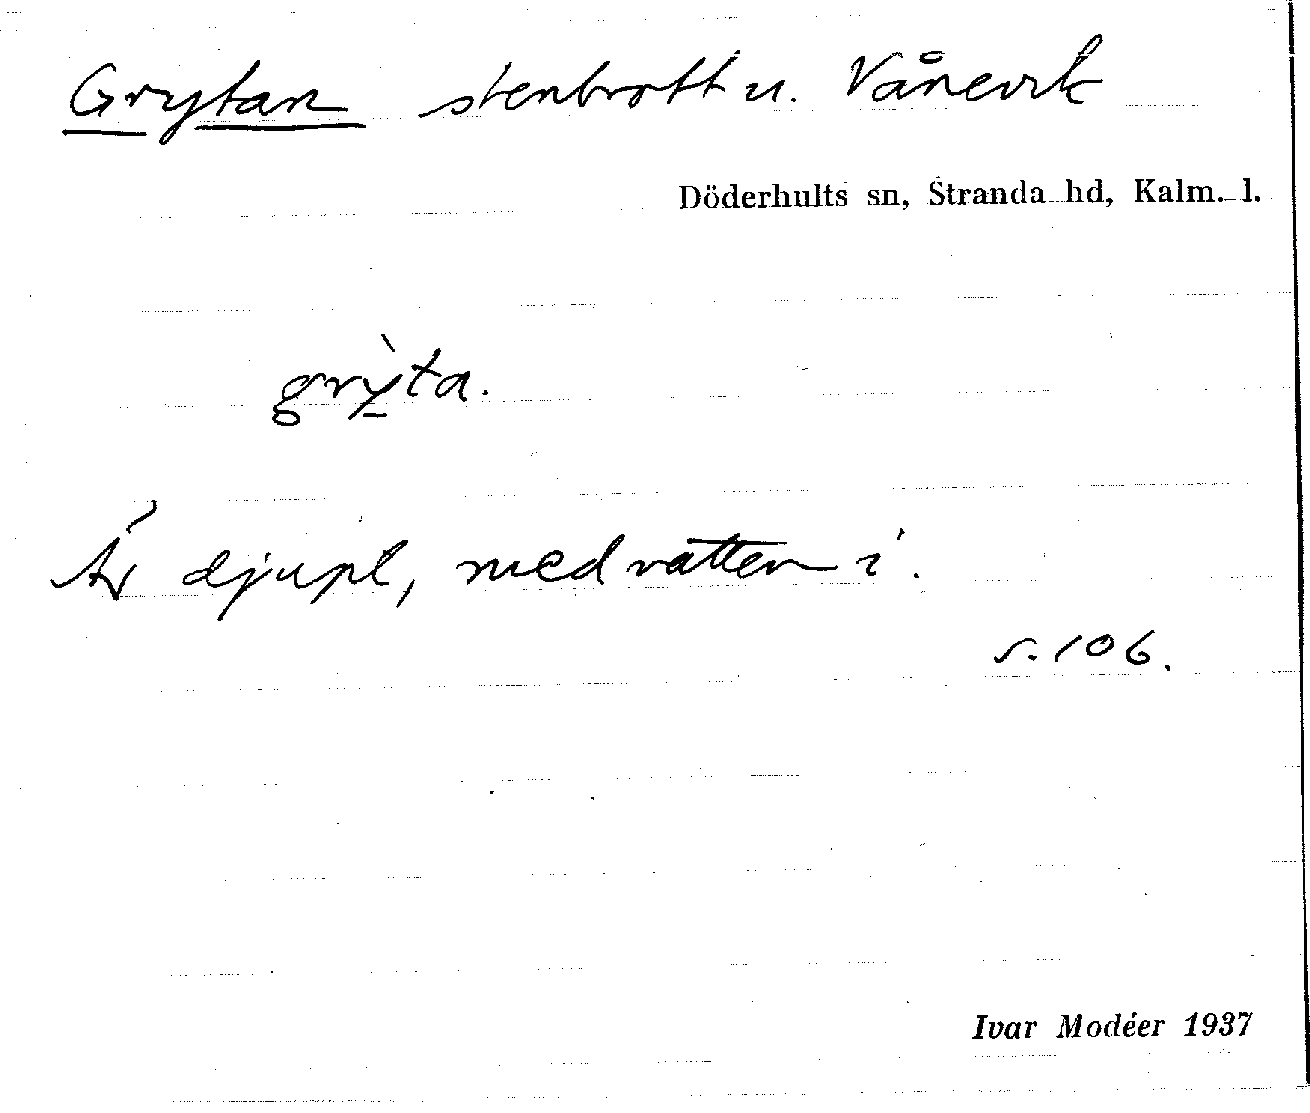 Grytan stenbrott u. Vånevik
Döderhults sn, Stranda hd, Kalm. l.
grỳta.
Är djupt, med vatten i.
s. 106.
Ivar Modéer 1937